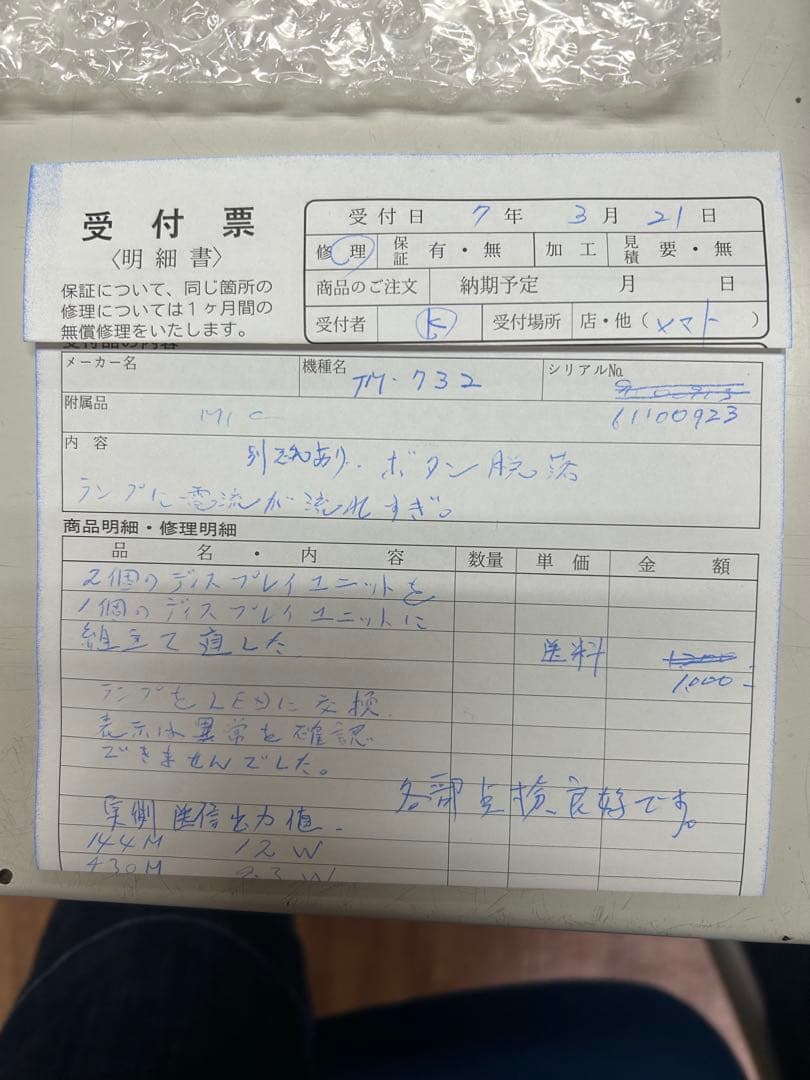 受付票
〈明細書〉
保証について、同じ箇所の
修理については1ヶ月間の
無償修理をいたします。
受付日 7年 3月 21日
修理 保証 有・無 加工 見積 要・無
商品のご注文 納期予定 月 日
受付者 K 受付場所 店・他(ヤマト)
受付品の内容
メーカー名 機種名 TM-732 シリアルNo
付属品 MIC 61100923
内容 ボタン脱落
ランプに電流が流れすぎ。
商品明細・修理明細
品名・内容 数量 単価 金額
2個のディスプレイユニットを
1個のディスプレイユニットに
組立て直した 送料 1,200
1,000-
ランプをLEDに交換
表示は異常を確認
できませんでした。
各部点検、良好です。
実測 送信出力値.
144M 12W
430M W